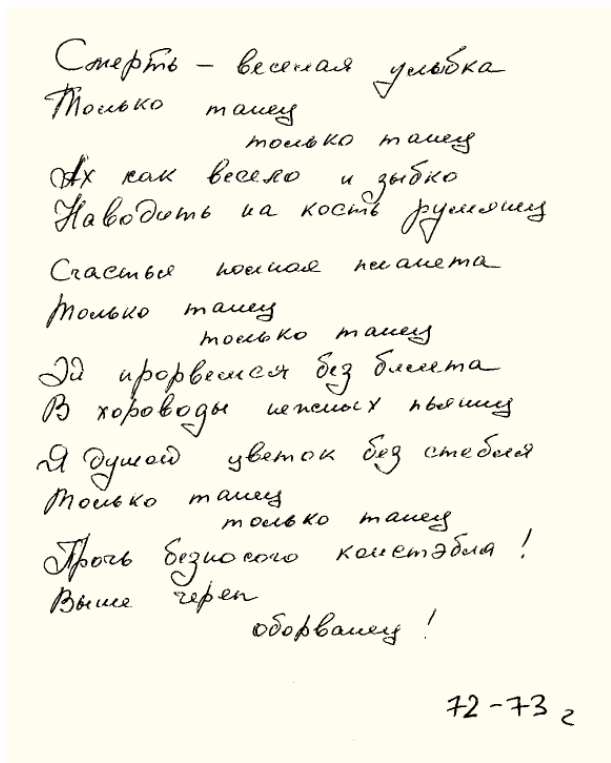 Смерть – веселая улыбка
Только танец
только танец
Ах как весело и зыбко
Наводить на кость румянец
Счастья полная планета
Только танец
только танец
Эй прорвемся без билета
В хороводы нежных пьяниц
Я душой цветок без стебля
Только танец
только танец
Прочь безносого констэбля!
Выше череп
оборванец!
72-73 г